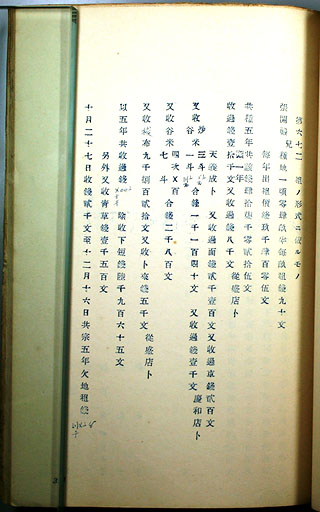 第六七二 租ノ形式ニ依ルモノ
張開婦兒種地一頃零肆畝半每畝租錢九十文
每年出租價錢玖千肆百零伍文
共種五年共該錢肆拾柒千零貳拾伍文
第一年
收過錢壹拾千文又收過錢八千文 從盛店卜
天義成卜 又收過面錢貳千壹百文又收過草錢貳百文
又收炒米三斗 合錢一千一百四十文 又收過錢壹千文廣和店卜
谷米一斗
又收谷米四次 百合錢二千八百文
七斗
又收梭布九千捌百貳拾文又收卜來錢五千文 從盛店卜
以五年共收過錢 除收下短錢陸千九百六十五文
另外又收青草錢壹千五百文
十月二十七日收錢貳千文至十二月十六日共宗五年欠地租錢